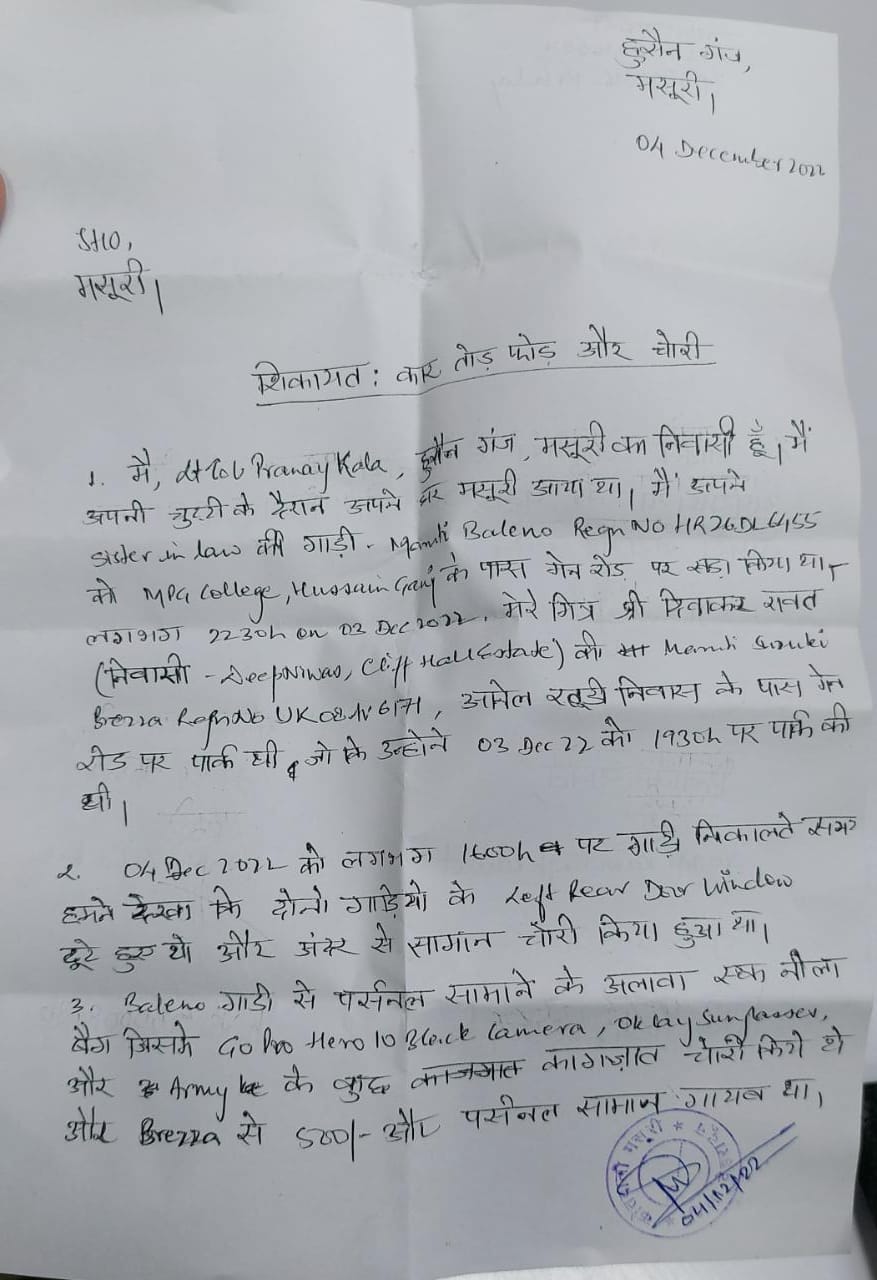 हुसैन गंज,
मसूरी।
04 December 2022
SHO,
मसूरी।
शिकायत: कार तोड़ फोड़ और चोरी
1. मै, Lt Col Pranay Kala, हुसैन गंज, मसूरी का निवासी हूँ। मैं
अपनी छुट्टी के दौरान अपने घर मसूरी आया था। मैं अपने
sister in law की गाड़ी - Maruti Baleno Regn NO HR26DL6455
को MPG College, Hussain Ganj के पास मेन रोड़ पर खड़ा किया था,
लगभग 2230h on 03 Dec 2022. मेरे मित्र श्री दिवाकर रावत
(निवासी - Deep Niwas, Cliff Hall Estate) की Maruti Suzuki
Brezza Regn No UK08AV6171, निवास के पास मेन
रोड पर पार्क थी, जो कि उन्होने 03 Dec 22 को 1930h पर पार्क की
थी।
2. 04 Dec 2022 को लगभग 1600h पर गाड़ी निकालते समय
हमने देखा कि दोनो गाड़ियो के Left Rear Door Window
टूटे हुए थे और अंदर से सामान चोरी किया हुआ था।
3. Baleno गाडी से पर्सनल सामाने के अलावा एक नीला
बैग जिसमे Go Pro Hero 10 Black Camera, Oklay Sunglasses,
और Army के कुछ कागज़ात चोरी किये थे
और Brezza से 500/- और पर्सनल सामान गायब था।
कोतवाली मसूरी
04/12/22